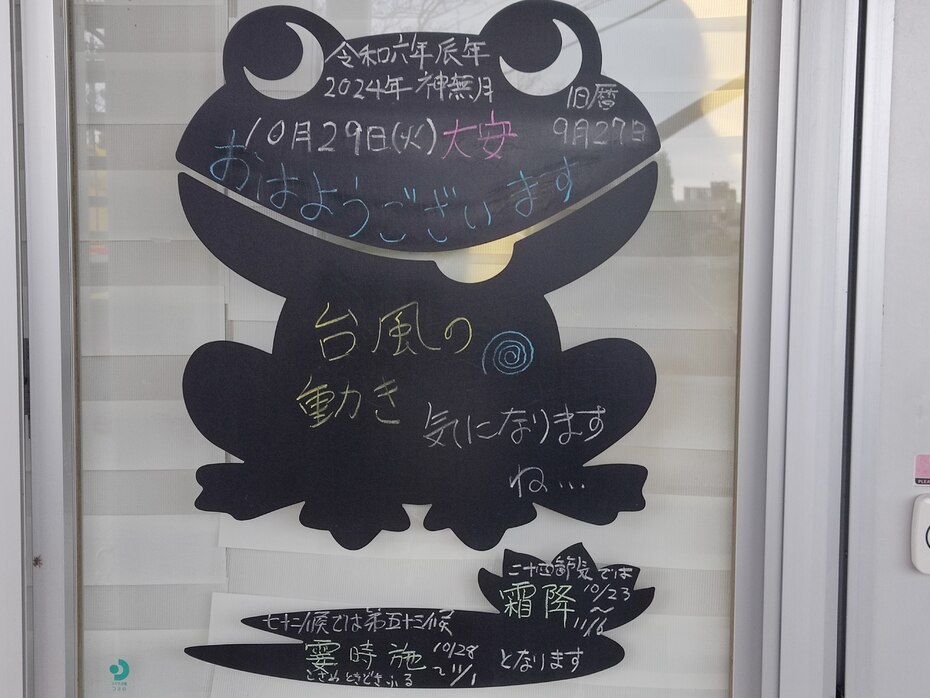 令和六年辰年
2024年 神無月
10月29日(火)大安
旧暦
9月27日
おはようございます
台風の
動き
気になります
ね…
二十四節気では
霜降 10/23
~
11/6
七十二候では第五十三候
霎時施 10/28
~11/1
となります
こさめときどきふる